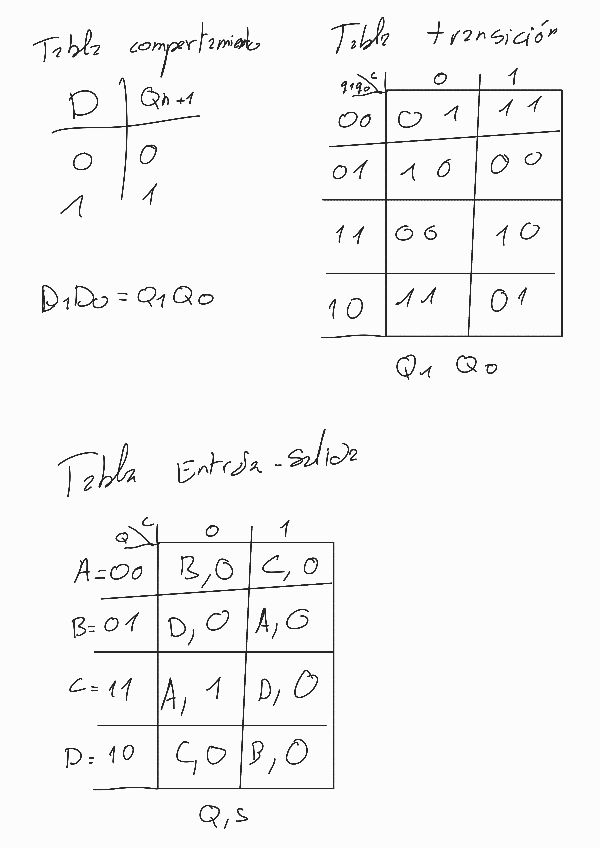 Tabla comportamiento
D Qn+1
0 0
1 1
D1D0 = Q1Q0
Tabla transición
q1q0 C 0 1
00 01 11
01 10 00
11 00 10
10 11 01
Q1 Q0
Tabla Entrada-Salida
Q C 0 1
A=00 B,0 C,0
B=01 D,0 A,0
C=11 A,1 D,0
D=10 C,0 B,0
Q,S